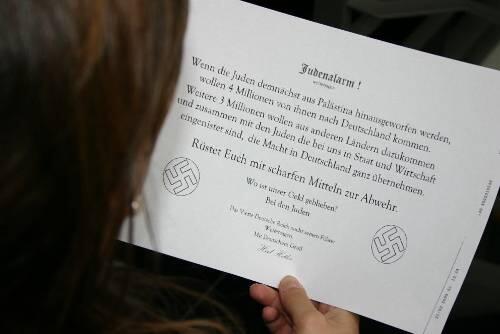 Judenalarm !
Wenn die Juden demnächst aus Palästina hinausgeworfen werden,
wollen 4 Millionen von ihnen nach Deutschland kommen.
Weitere 3 Millionen wollen aus anderen Ländern dazukommen
und zusammen mit den Juden die bei uns in Staat und Wirtschaft
eingenistet sind, die Macht in Deutschland ganz übernehmen.
Rüstet Euch mit scharfen Mitteln zur Abwehr.
Wo ist unser Geld geblieben?
Bei den Juden
Das Vierte Deutsche Reich sucht seinen Führer
Weitersagen
Mit Deutschem Gruß